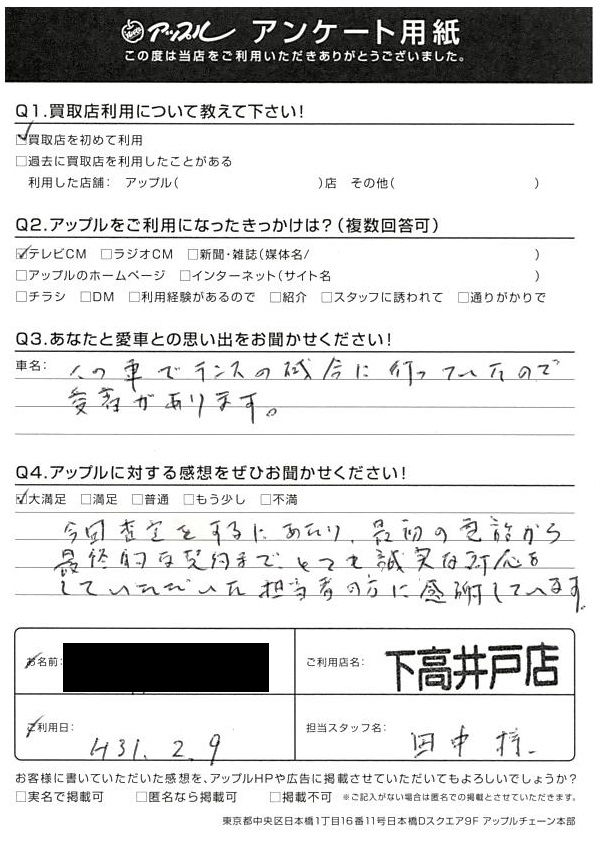 アップル アンケート用紙
この度は当店をご利用いただきありがとうございました。
Q1.買取店利用について教えて下さい!
☑買取店を初めて利用
□過去に買取店を利用したことがある
利用した店舗: アップル( )店 その他( )
Q2.アップルをご利用になったきっかけは?(複数回答可)
☑テレビCM □ラジオCM □新聞・雑誌(媒体名/ )
□アップルのホームページ □インターネット(サイト名 )
□チラシ □DM □利用経験があるので □紹介 □スタッフに誘われて □通りがかりで
Q3.あなたと愛車との思い出をお聞かせください!
車名: この車でテニスの試合に行っていたので
愛着があります。
Q4.アップルに対する感想をぜひお聞かせください!
☑大満足 □満足 □普通 □もう少し □不満
今回査定をするにあたり、最初の電話から
最終的な契約まで、とても誠実な対応を
していただいた担当者の方に感謝しています。
お名前:
ご利用店名: 下高井戸店
ご利用日: H31. 2. 9
担当スタッフ名: 田中 様
お客様に書いていただいた感想を、アップルHPや広告に掲載させていただいてもよろしいでしょうか?
□実名で掲載可 □匿名なら掲載可 □掲載不可 ※ご記入がない場合は匿名での掲載とさせていただきます。
東京都中央区日本橋1丁目16番11号日本橋Dスクエア9F アップルチェーン本部